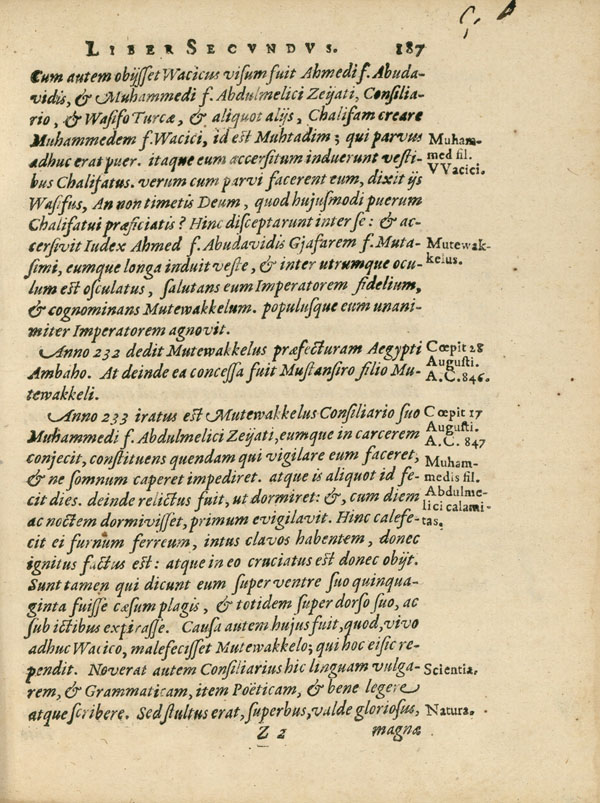 LIBER SECVNDVS. 187
Cum autem obijsset Wacicus visum fuit Ahmedi f. Abuda-
vidis, & Muhammedi f. Abdulmelici Zeijati, Consilia-
rio, & Wasifo Turcæ, & aliquot alijs, Chalifam creare
Muhammedem f. Wacici, id est Muhtadim; qui parvus
adhuc erat puer. itaque eum accersitum induerunt vesti-
bus Chalifatus. verum cum parvi facerent eum, dixit ijs
Wasifus, An non timetis Deum, quod hujusmodi puerum
Chalifatui præficiatis? Hinc disceptarunt inter se: & ac-
cersivit Iudex Ahmed f. Abudavidis Gjafarem f. Muta-
simi, eumque longa induit veste, & inter utrumque ocu-
lum est osculatus, salutans eum Imperatorem fidelium,
& cognominans Mutewakkelum. populusque eum unani-
miter Imperatorem agnovit.
Anno 232 dedit Mutewakkelus præfecturam Aegypti
Ambaho. At deinde ea concessa fuit Mustansiro filio Mu-
tewakkeli.
Anno 233 iratus est Mutewakkelus Consiliario suo
Muhammedi f. Abdulmelici Zeijati, eumque in carcerem
conjecit, constituens quendam qui vigilare eum faceret,
& ne somnum caperet impediret. atque is aliquot id fe-
cit dies. deinde relictus fuit, ut dormiret: &, cum diem
ac noctem dormivisset, primum evigilavit. Hinc calefe-
cit ei furnum ferreum, intus clavos habentem, donec
ignitus factus est: atque in eo cruciatus est donec obijt.
Sunt tamen qui dicunt eum super ventre suo quinqua-
ginta fuisse cæsum plagis, & totidem super dorso suo, ac
sub ictibus expirasse. Causa autem hujus fuit, quod, vivo
adhuc Wacico, malefecisset Mutewakkelo; qui hoc ei sic re-
pendit. Noverat autem Consiliarius hic linguam vulga-
rem, & Grammaticam, item Poëticam, & bene legere
atque scribere. Sed stultus erat, superbus, valde gloriosus,
Z 2 magnæ
Muham-
med fil.
VVacici.
Mutewak-
kelus.
Cœpit 28
Augusti.
A.C. 846.
Cœpit 17
Augusti.
A.C. 847
Muham-
medis fil.
Abdulme-
lici calami-
tas.
Scientia.
Natura.